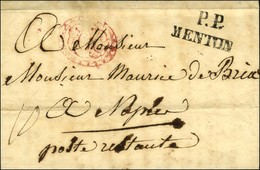 P.P.
MENTON
A Monsieur
Monsieur Maurice de Brix
A Naples
poste restante